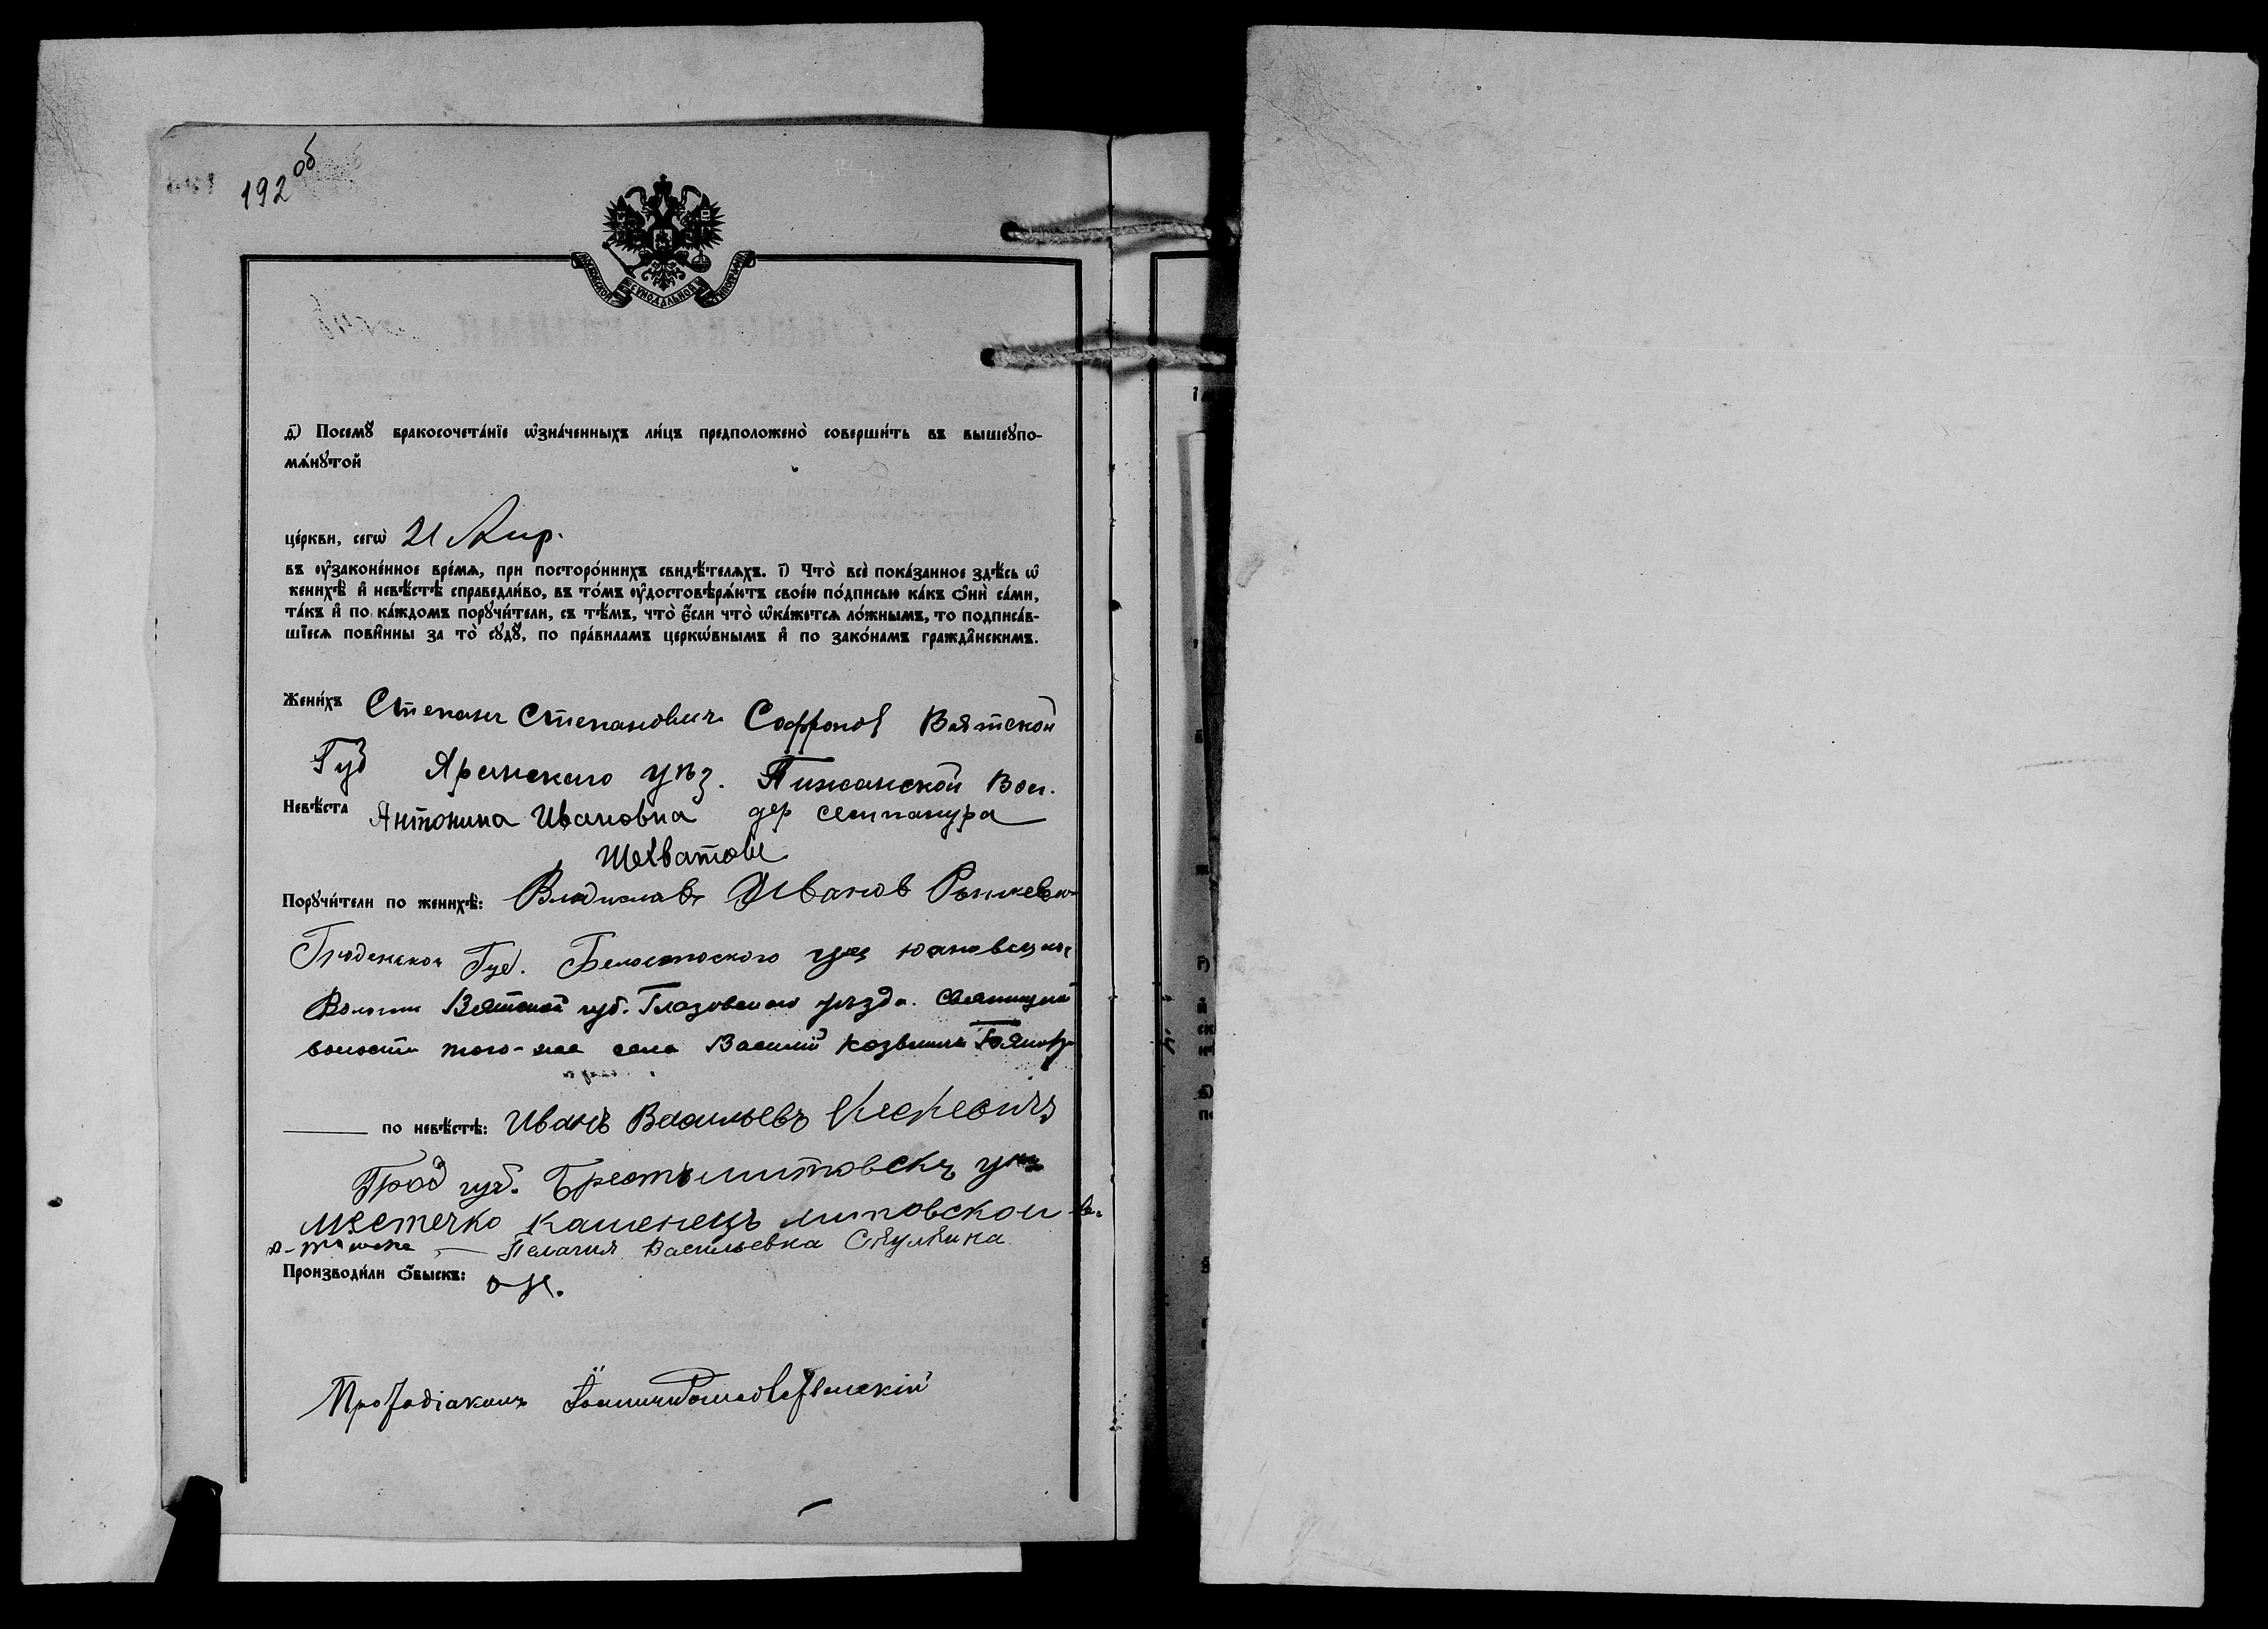 192 об
МОСКОВСКОЙ СѴНОДАЛЬНОЙ ТИПОГРАФІИ
д҃) Посемꙋ̀ бракосочета́нїе ѡ҆зна́ченныхъ ли́цъ предположено̀ соверши́ть въ вышеꙋпо-
мѧ́нꙋтой
це́ркви, сегѡ̀ 21 Апр.
въ оу҆законе́нное вре́мѧ, при посторо́ннихъ свидѣ́телѧхъ. і҃) Что̀ всѐ пока́занное здѣ́сь ѡ҆
женихѣ̀ и҆ невѣ́стѣ справедли́во, въ то́мъ оу҆достовѣрѧ́ютъ свое́ю по́дписью ка́къ ѻ҆нѝ са́ми,
та́къ и҆ по ка́ждомъ порꙋчи́тели, съ тѣ́мъ, что̀ є҆́сли что̀ ѡ҆ка́жетсѧ ло́жнымъ, то подписа́в-
шїесѧ пови́нны за то̀ сꙋдꙋ̀, по пра́виламъ церкѡ́внымъ и҆ по зако́намъ гражда́нскимъ.
Жени́хъ Степанъ Степановичъ Соффонов Вятской
Губ Яранскаго уѣз. Пижанской Вол.
Невѣ́ста Антонина Ивановна дер
Шехватова
Порꙋчи́тели по женихѣ̀: Владиславъ Иванов
Гродненской Губ. Белостоского уез
Волости Вятской губ. Глазовскаго уѣзда.
волости того-же села Василий Козьмичъ
по невѣ́стѣ: Иванъ Васильевъ
Грод губ. Брестълитовскъ уѣз
местечко каменецъ литовской
Пелагия Васильевна Скулкина
Производи́ли ѻ҆́быскъ:
Протодіаконъ Іоаннъ Рождественскій